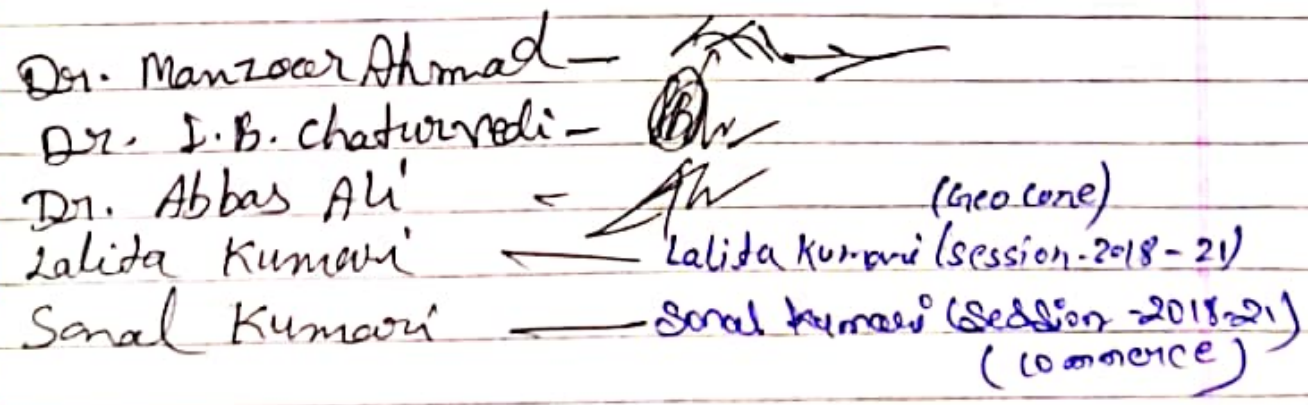 Dr. Manzoor Ahmad -
Dr. I.B. Chaturvedi -
Dr. Abbas Ali -
(Geo
Lalita Kumari — Lalita Kumari (Session-2018-21)
Sonal Kumari — Sonal Kumari (Session-2018-21)
(Commerce)